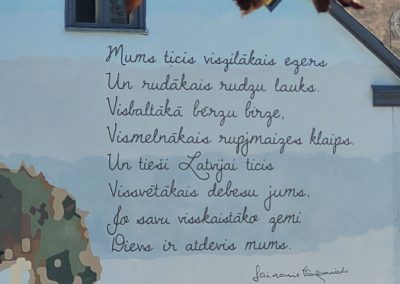 Mums ticis viszilākais ezers
Un rudākais rudzu lauks.
Visbaltākā bērzu birze,
Vismelnākais rupjmaizes klaips.
Un tieši Latvijai ticis
Vissvētākais debesu jums,
Jo savu visskaistāko zemi
Dievs ir atdevis mums.